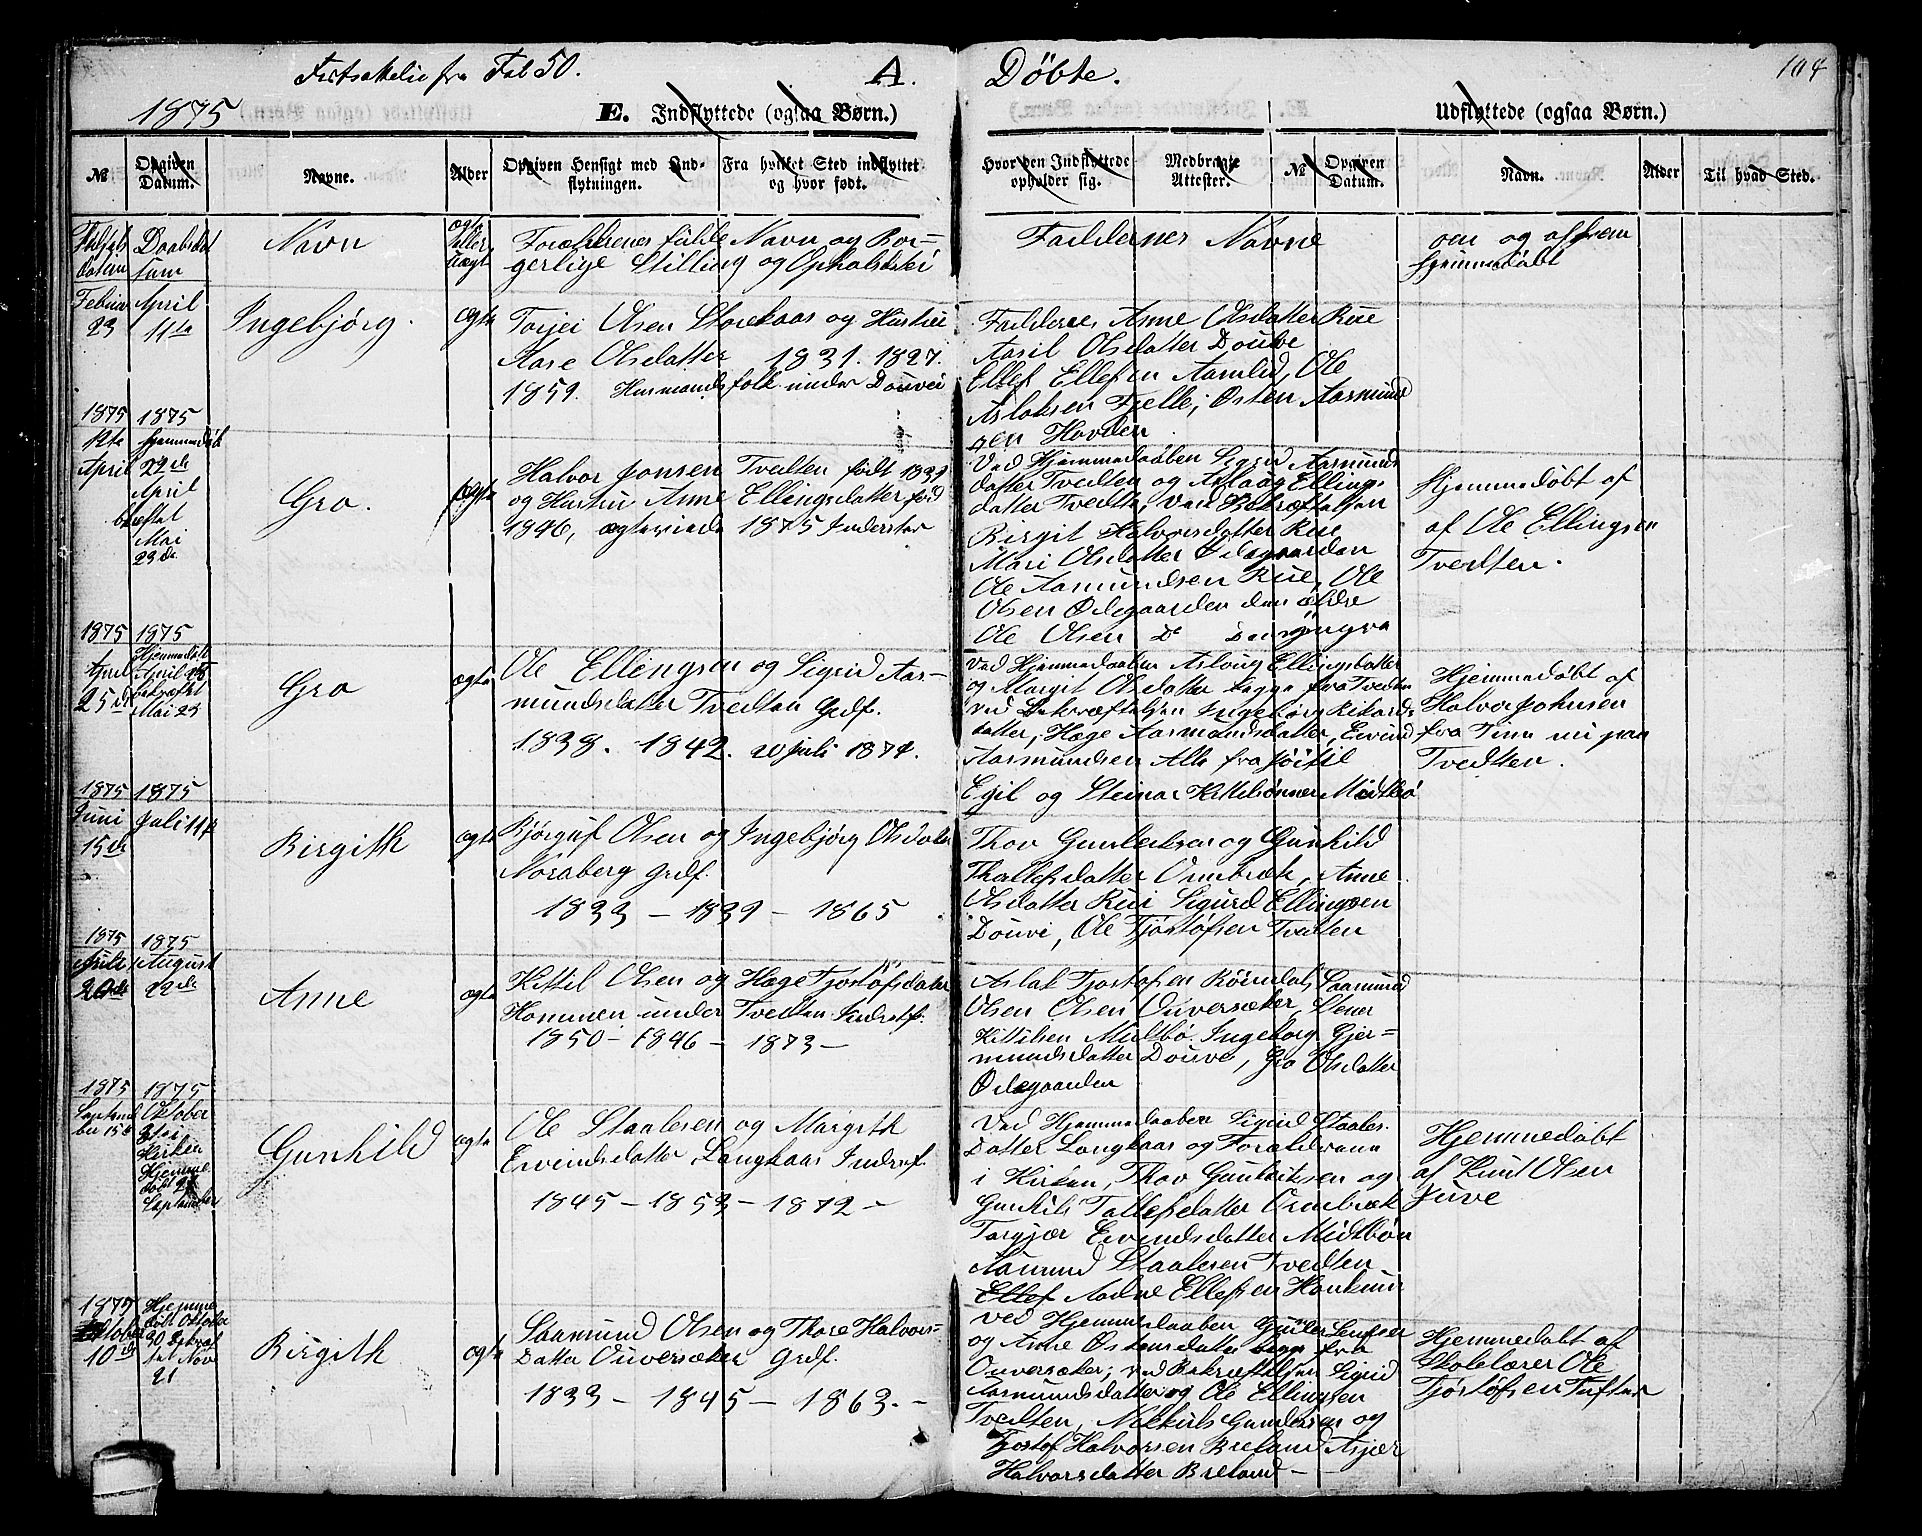 Fortsættelse fra Fol 50. A. Døbte. 104
1875
E. Indflyttede (ogsaa Børn.) Udflyttede (ogsaa Børn.)
№ Opgiven Datum. Navne. Alder Opgiven Hensigt med Ind-flytningen. Fra hvilket Sted indflyttet og hvor født. Hvor den Indflyttede opholder sig. Medbragte Attester. № Opgiven Datum. Navn. Alder Til hvad Sted.
Navn
ægte eller uægt
Forældrenes fulde Navn og Bor-
gerlige Stilling og Opholdsted
Faddernes Navne
om og af hvem
hjemmedøbt
Februar 23
April 11te
Ingebjørg.
ægte
Torjei Olsen Storekaas og Hustru
Aase Olsdatter 1831. 1827.
1859. Husmandsfolk under Douvei
Faddere, Anne Olsdatter Rue
Aasil Olsdatter Douve
Ellef Ellefsen Aamlid, Ole
Aslaksen Fjelle, Østen Aasmund
sen Hovden
1875
12te
April
1875
hjemmedøbt
22de
April
bekræftet
Mai
23de
Gro.
ægte
Halvor Jonsen Tvedten født
og Hustru Anne Ellingsdatter født
1846, ægteviede 1875 Inderster
Ved Hjemmedaaben Sigrid Aasmunds
datter Tvedten og Aslaug Ellings
datter Tvedte, ved Bekræftelsen
Birgit Halvorsdatter Rue
Mari Olsdatter Ødegaarden
Ole Aasmundsen Rue, Ole
Olsen Ødegaarden den ældre
Ole Olsen D den yngre
Hjemmedøbt af
af Ole Ellingsen
Tvedten.
1875
April
25de
1875
Hjemmedøbt
April
bekræftet
Mai 23
Gro
ægte
Ole Ellingsen og Sigrid Aas-
mundsdatter Tvedten Grdf.
1838. 1842. 20 juli 1874.
Ved Hjemmedaaben Aslaug Ellingsdatter
og Margit Olsdatter begge fra Tvedten
ved Bekræftelsen Ingebørg Rikards
datter, Hæge Aasmundsdatter, Eivind
Aasmundsen Alle fra
Egil og Steinar Kittilsønner Midtbø
Hjemmedøbt af
Halvor Johnsen
fra Tinn nu paa
Tvedten.
1875
Juni
15de
1875
Juli 11te
Birgith
ægte
Bjørguf Olsen og Ingebjørg Olsdatter
Norsberg Grdf.
1833 - 1839 - 1865
Thov Gunleiksen og Gunhild
Thollefsdatter Ormbræk, Anne
Olsdatter Rui Sigurd Ellingsen
Douve, Ole Tjøstøfsen Tvedten
1875
Juli
20de
1875
August
22de
Anne
ægte
Kittil Olsen og Hæge Tjøstøfsdatter
Hommen under Tvedten Inderstf.
1850 - 1846 - 1873 -
Aslak Tjostofsen Røisdal, Saamund
Olsen Olsen Ouversæker, Stener
Kittilsen Midtbø. Ingeborg Gjer=
mundsdatter Douve, Gro Olsdatter
Ødegaarden
1875
Septem
ber 15de
1875
Oktober
31 i
Kirken
Hjemme
døbt 21
September
Gunhild
ægte
Ole Staalesen og Margith
Eivindsdatter Langkaas Inderstf.
1845 - 1853 - 1872 -
Ved Hjemmedaaben Sigrid Staales
Datter Langkaas og Forældrene
i Kirken, Thov Gunleiksen og
Gunhild Tollefsdatter Ormbræk
Torgjær Eivindsdatter Midtbøn
Aamund Staalesen Tvedten
Ellef Aadne Ellefsen
Hjemmedøbt
af Knut Olsen
Juve
1875
Oktober
10de
Hjemme
døbt Oktober
30 Bekræf
tet Nov
21
Birgith
ægte
Saamund Olsen og Thore Halvors=
Datter Ouversæker Grdf.
1833 - 1845 - 1863. -
ved Hjemmedaaben
og Anne Østensdatter begge fra
Ouversæker, ved Bekræftelsen Sigrid
Aasmundsdatter og Ole Ellingsen
Tvedten, Gundersen og
Tjostof Halvorsen Breland Asjær
Halvorsdatter Breland -
Hjemmedøbt af
Skolelærer Ole
Tjøstøfsen Tufte